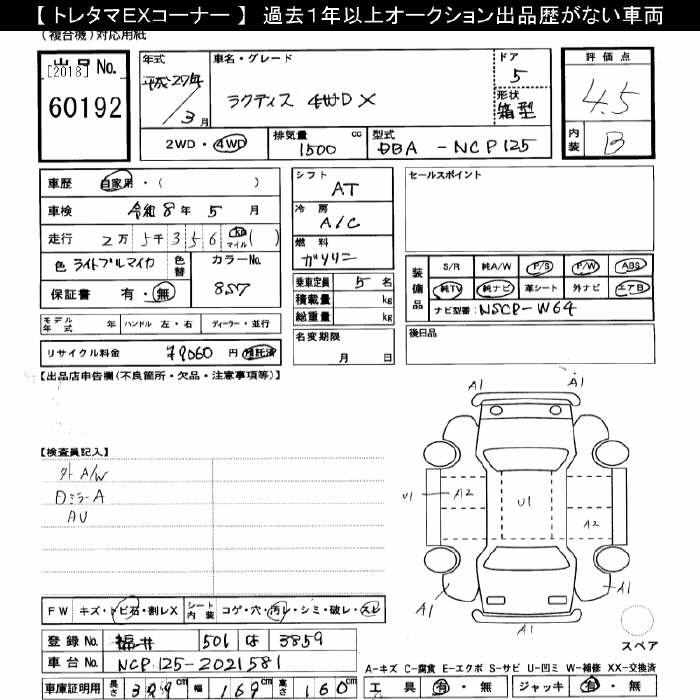 【 トレタマEXコーナー 】 過去１年以上オークション出品歴がない車両
(複合機)対応用紙
出品No.
[2018]
60192
年式
平成27年
3月
車名・グレード
ラクティス 4WD X
ドア
5
形状
箱型
評価点
4.5
内装
B
2WD・4WD
排気量 1500 cc
型式 DBA - NCP125
車歴 自家用・( )
車検 令和8年 5月
走行 2万5千356 km マイル ( )
色 ライトブルマイカ
色替
カラーNo. 8S7
保証書 有・無
モデル年式 年 ハンドル 左・右 ディーラー・並行
リサイクル料金 79060 円 預託済
シフト
AT
冷房
A/C
燃料
ガソリン
乗車定員 5 名
積載量 kg
総重量 kg
名変期限
月 日
セールスポイント
装備品
S/R 純A/W P/S P/W ABS
純TV 純ナビ 革シート 外ナビ エアB
ナビ型番: NSCP-W64
後日品
【出品店申告欄(不良箇所・欠品・注意事項等)】
【検査員記入】
外A/W
DミラーA
AU
A1
A1
U1
A2
U1
A2
A1
A1
A1
スペア
FW キズ・トビ石・割レX
シート内装 コゲ・穴・汚レ・シミ・破レ・スレ
登録No. 福井 501 は 3859
車台No. NCP125-2021581
車庫証明用 長さ 399cm 幅 169cm 高さ 160cm
A-キズ C-腐食 E-エクボ S-サビ U-凹ミ W-補修 XX-交換済
工具 有・無 ジャッキ 有・無